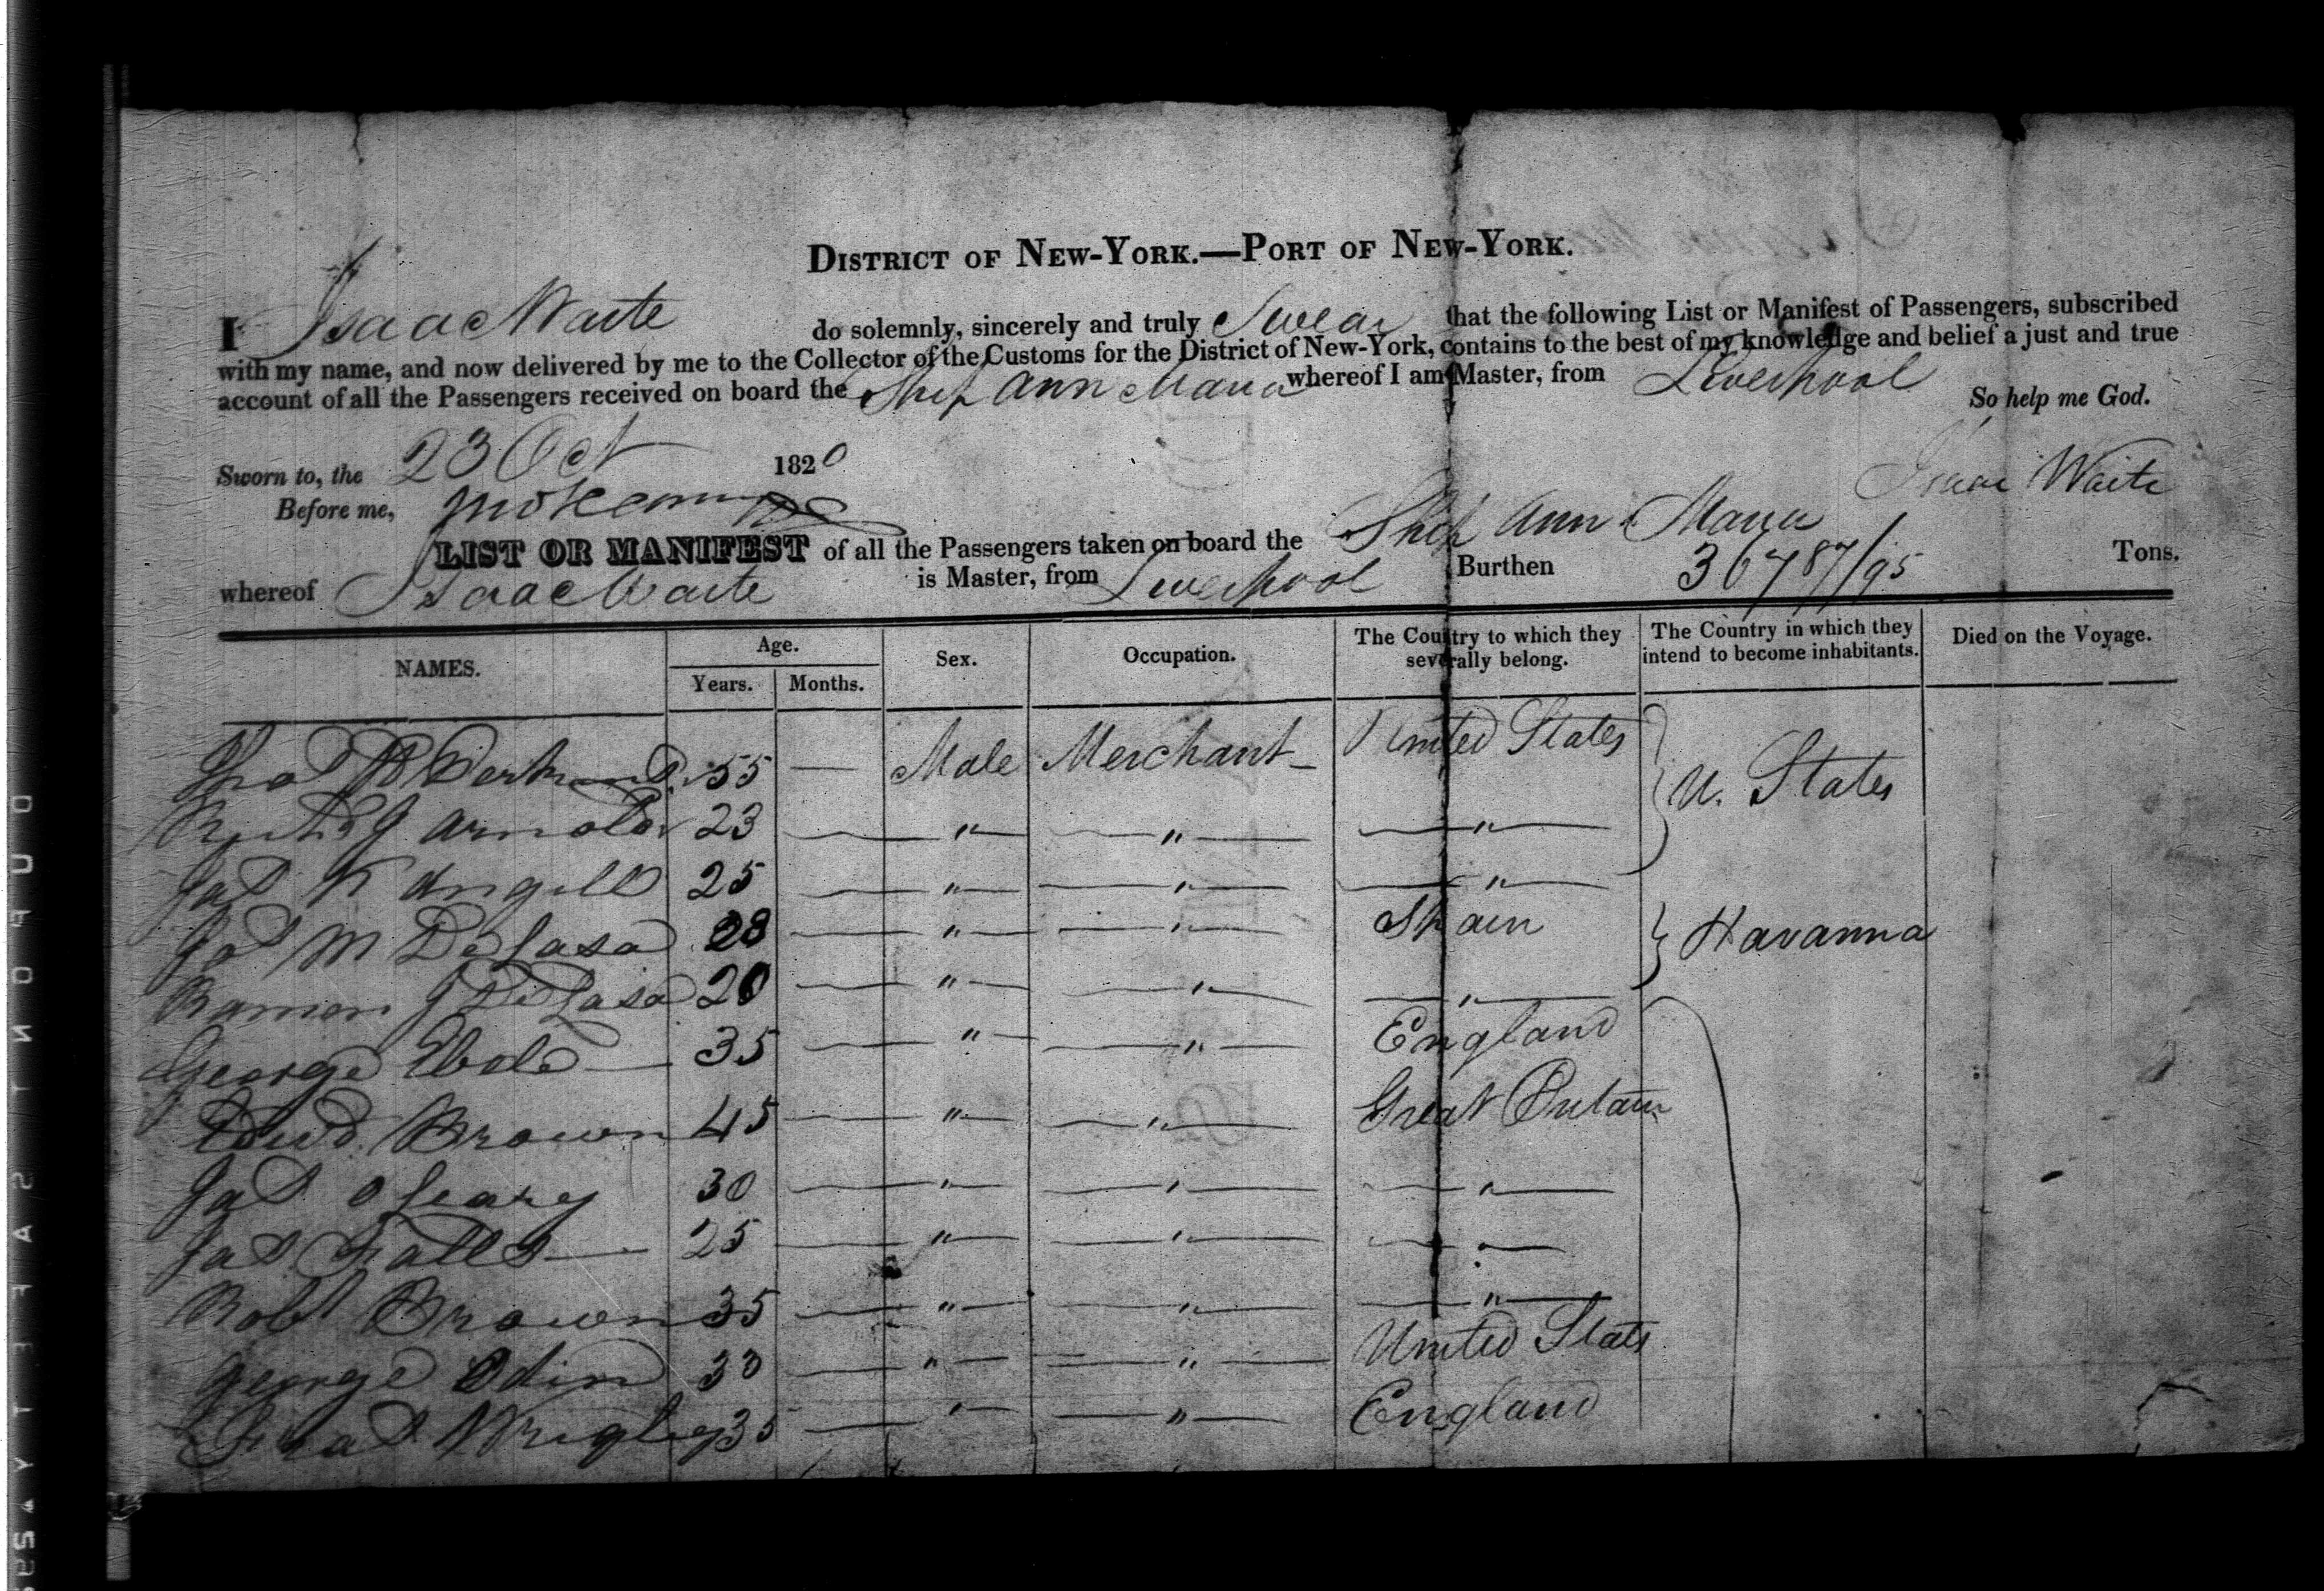 DISTRICT OF NEW-YORK.—PORT OF NEW-YORK.
I Isaac Waite do solemnly, sincerely and truly Swear that the following List or Manifest of Passengers, subscribed
with my name, and now delivered by me to the Collector of the Customs for the District of New-York, contains to the best of my knowledge and belief a just and true
account of all the Passengers received on board the Ship Ann Maria whereof I am Master, from Liverpool
So help me God.
Sworn to, the 23 Oct 1820
Isaac Waite
Before me,
LIST OR MANIFEST of all the Passengers taken on board the Ship Ann Maria
whereof Isaac Waite is Master, from Liverpool Burthen 367 87/95 Tons.
NAMES. Age. Years. Months. Sex. Occupation. The Country to which they severally belong. The Country in which they intend to become inhabitants. Died on the Voyage.
55 — Male Merchant — United States
U. States
J Arnold 23 — " — " — " —
Jas K Angell 25 — " — " — " —
M De Lasa 28 — " — " — Spain
Havanna
Ramon J De Lasa 20 — " — " — " —
George — 35 — " — " — England
Edwd. Brown 45 — " — " — Great Britain
Jas O Leary 30 — " — " — " —
Jas Falls — 25 — " — " — " —
Robt Brown 35 — " — " — " —
George Odin 30 — " — " — United States
Wrigley 35 — " — " — England